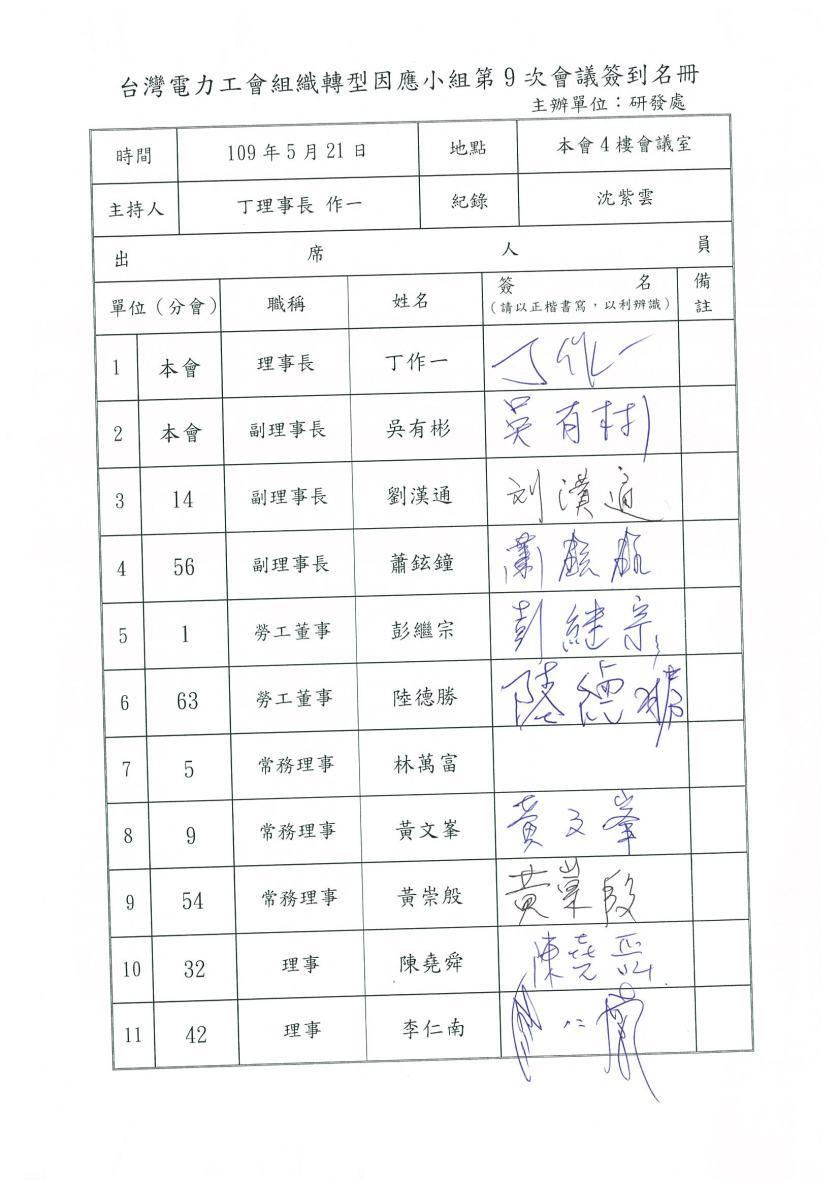 台灣電力工會組織轉型因應小組第9次會議簽到名冊
主辦單位：研發處
時間 109年5月21日 地點 本會4樓會議室
主持人 丁理事長 作一 紀錄 沈紫雲
出 席 人 員
單位（分會） 職稱 姓名 簽 名 備註
（請以正楷書寫，以利辨識）
1 本會 理事長 丁作一 丁作一
2 本會 副理事長 吳有彬 吳有彬
3 14 副理事長 劉漢通 刘漢通
4 56 副理事長 蕭鉉鐘
5 1 勞工董事 彭繼宗 彭継宗
6 63 勞工董事 陸德勝 陸德勝
7 5 常務理事 林萬富
8 9 常務理事 黃文峯 黃文峯
9 54 常務理事 黃崇殷 黃崇殷
10 32 理事 陳堯舜 陳堯
11 42 理事 李仁南